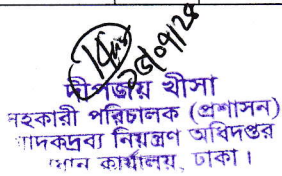 ২৫/০৭/২৪
দীপজয় খীসা
সহকারী পরিচালক (প্রশাসন)
মাদকদ্রব্য নিয়ন্ত্রণ অধিদপ্তর
প্রধান কার্যালয়, ঢাকা।